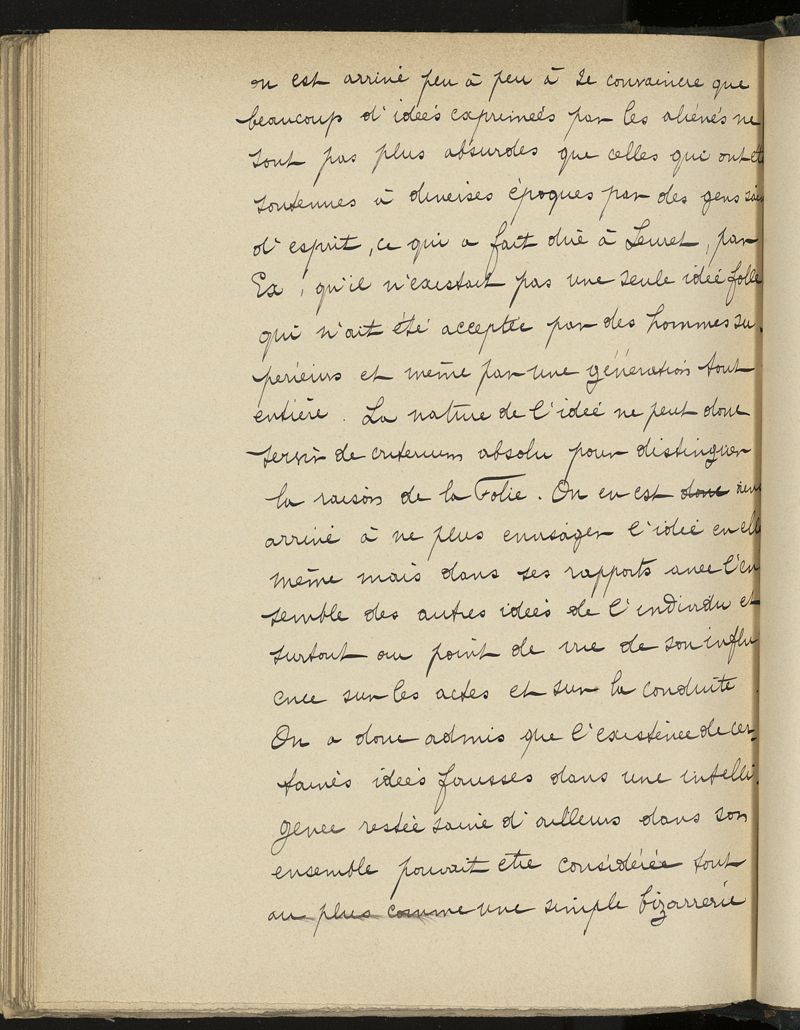 on est arrivé peu à peu à se convaincre que
beaucoup d'idées exprimées par les aliénés ne
sont pas plus absurdes que celles qui ont été
soutenues à diverses époques par des gens sains
d'esprit, ce qui a fait dire à Leuret, par
Ex, qu'il n'existait pas une seule idée folle
qui n'ait été acceptée par des hommes su-
périeurs et même par une génération tout
entière. La nature de l'idée ne peut donc
servir de criterium absolu pour distinguer
la raison de la Folie. On en est donc
arrivé à ne plus envisager l'idée en elle
même mais dans ses rapports avec l'en
semble des autres idées de l'individu et
surtout au point de vue de son influ
ence sur les actes et sur la conduite.
On a donc admis que l'existence de cer-
taines idées fausses dans une intelli-
gence restée saine d'ailleurs dans son
ensemble pouvait etre considérée tout
au plus comme une simple bizarrerie